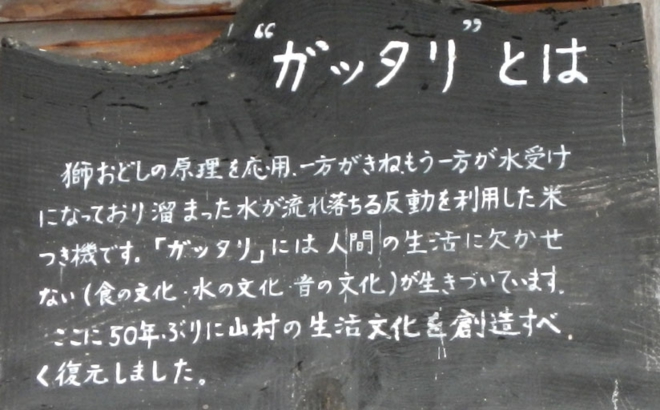 “ガッタリ”とは
獅おどしの原理を応用、一方がきねもう一方が水受け
になっており溜まった水が流れ落ちる反動を利用した米
つき機です。「ガッタリ」には人間の生活に欠かせ
ない(食の文化・水の文化・音の文化)が生きづいています。
ここに50年ぶりに山村の生活文化を創造すべ
く復元しました。